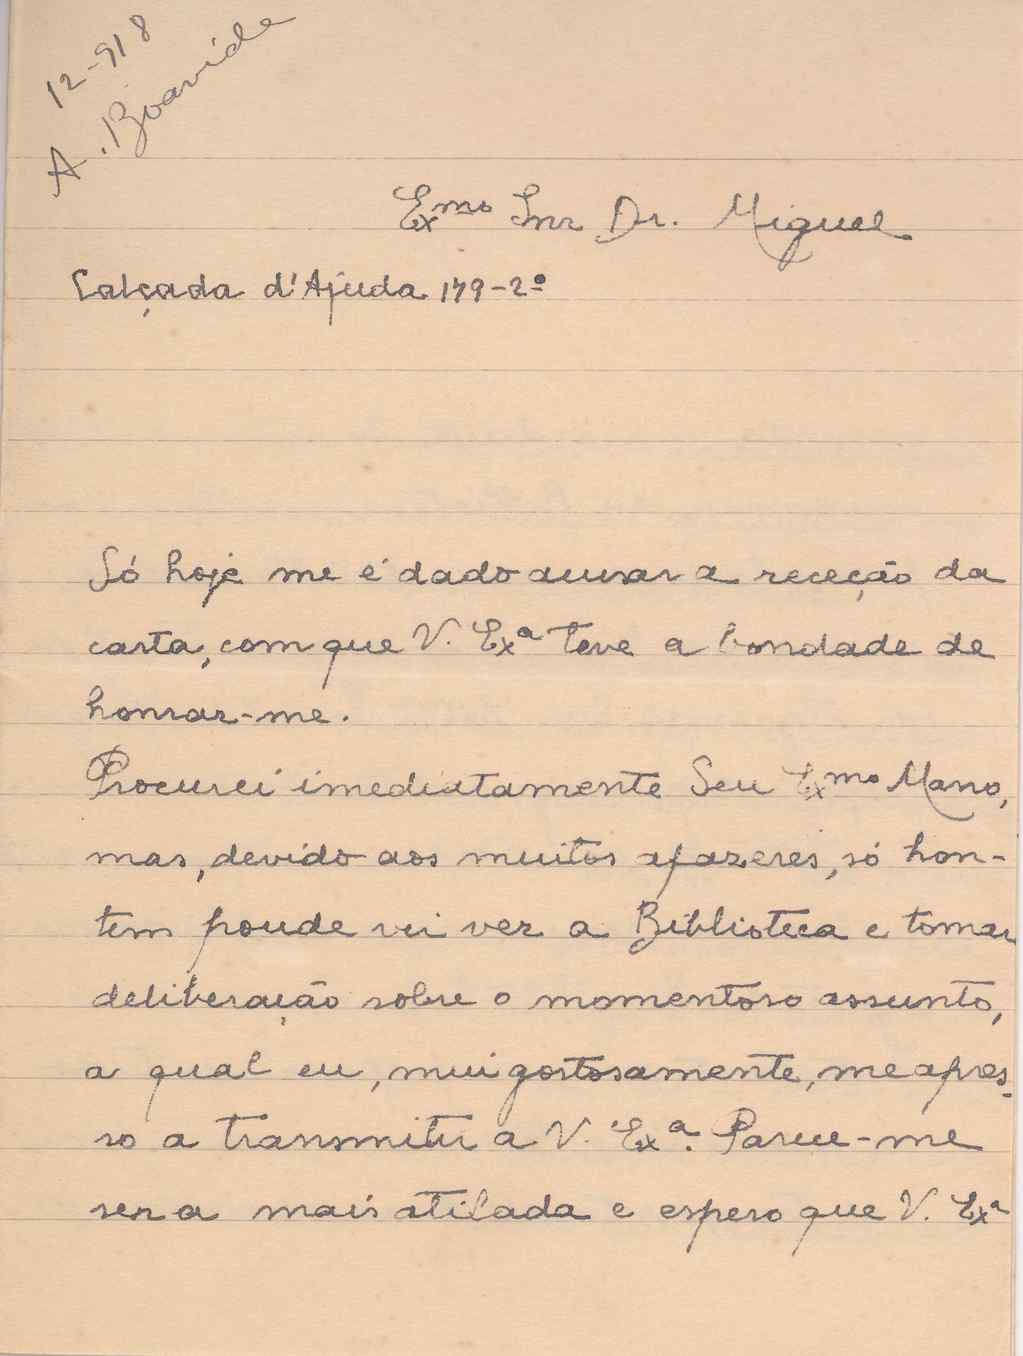 12-918
A. Boavida
Exmo Snr Dr. Miguel
Calçada d'Ajuda 179-2º
Só hoje me é dado acusar a receção da
carta, com que V. Exª teve a bondade de
honrar-me.
Procurei imediatamente Seu Exmo Mano,
mas, devido aos muitos afazeres, só hon-
tem poude vir ver a Biblioteca e tomar
deliberação sobre o momentoso assunto,
a qual eu, mui gostosamente, me apres-
so a transmitir a V. Exª. Parece-me
ser a mais atilada e espero que V. Exª